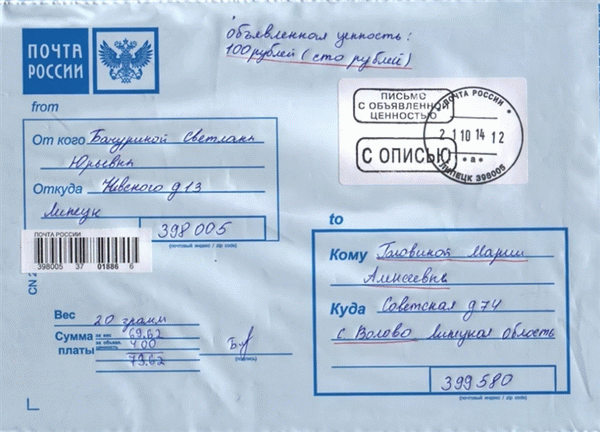 Объявленная ценность:
100 рублей (сто рублей)
ПОЧТА
РОССИИ
from
От кого Бачуриной Светланы
Юрьевны
Откуда Невского д 13
Липецк
398005
(почтовый индекс / zip code)
ПИСЬМО
С ОБЪЯВЛЕННОЙ
ЦЕННОСТЬЮ
С ОПИСЬЮ
ПОЧТА РОССИИ
21 10 14 12
а
ЛИПЕЦК 398005
ПОЧТА РОССИИ
398005 37 01886 6
CN
to
Кому Головиной Марии
Алексеевне
Куда Советская д 74
с Волово Липецкая область
399580
(почтовый индекс / zip code)
Вес 20 грамм
Сумма за вес 69.62
платы за объявл. ценность 4.00
73.62
(подпись)